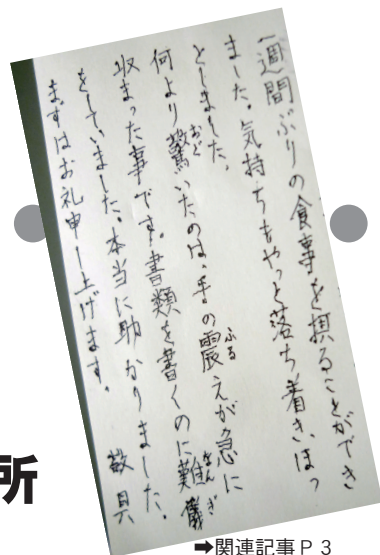 一週間ぶりの食事を摂ることができ
ました。気持ちもやっと落ち着き、ほっ
としました。
何より驚いたのは、手の震えが急に
おど
ふる
収まった事です。書類を書くのに難儀
なんぎ
をしていました、本当に助かりました。
まずはお礼申し上げます。
敬具
所
➡関連記事P3